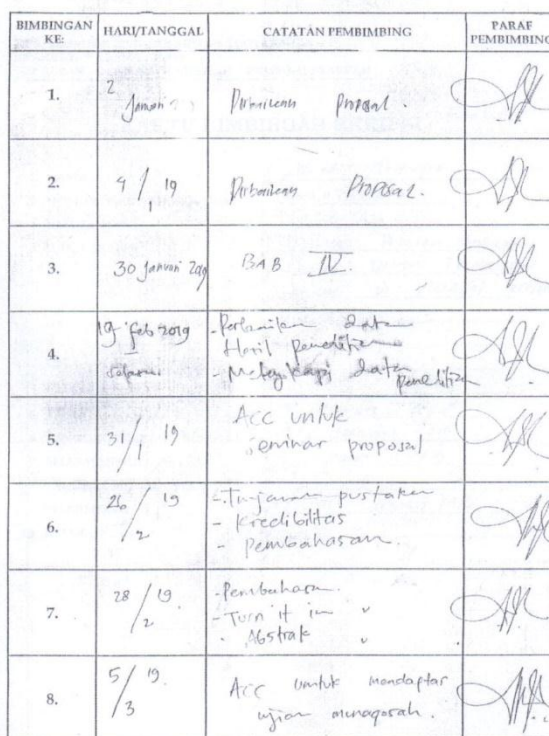 BIMBINGAN KE: HARI/TANGGAL CATATAN PEMBIMBING PARAF PEMBIMBING
1. 2 Januari Proposal
2. 4/1 19 Proposal.
3. 30 Januari 2019 BAB IV
4. 19 feb 2019 - Perbaikan data
Hasil penelitian
- Melengkapi data penelitian
5. 31/1 19 ACC untuk
seminar proposal
6. 26/2 19 - Tinjauan pustaka
- Kredibilitas
- Pembahasan.
7. 28/2 19. - Pembahasan.
- Turn it in
- Abstrak
8. 5/3 19. ACC untuk mendaptar
ujian munaqosah.